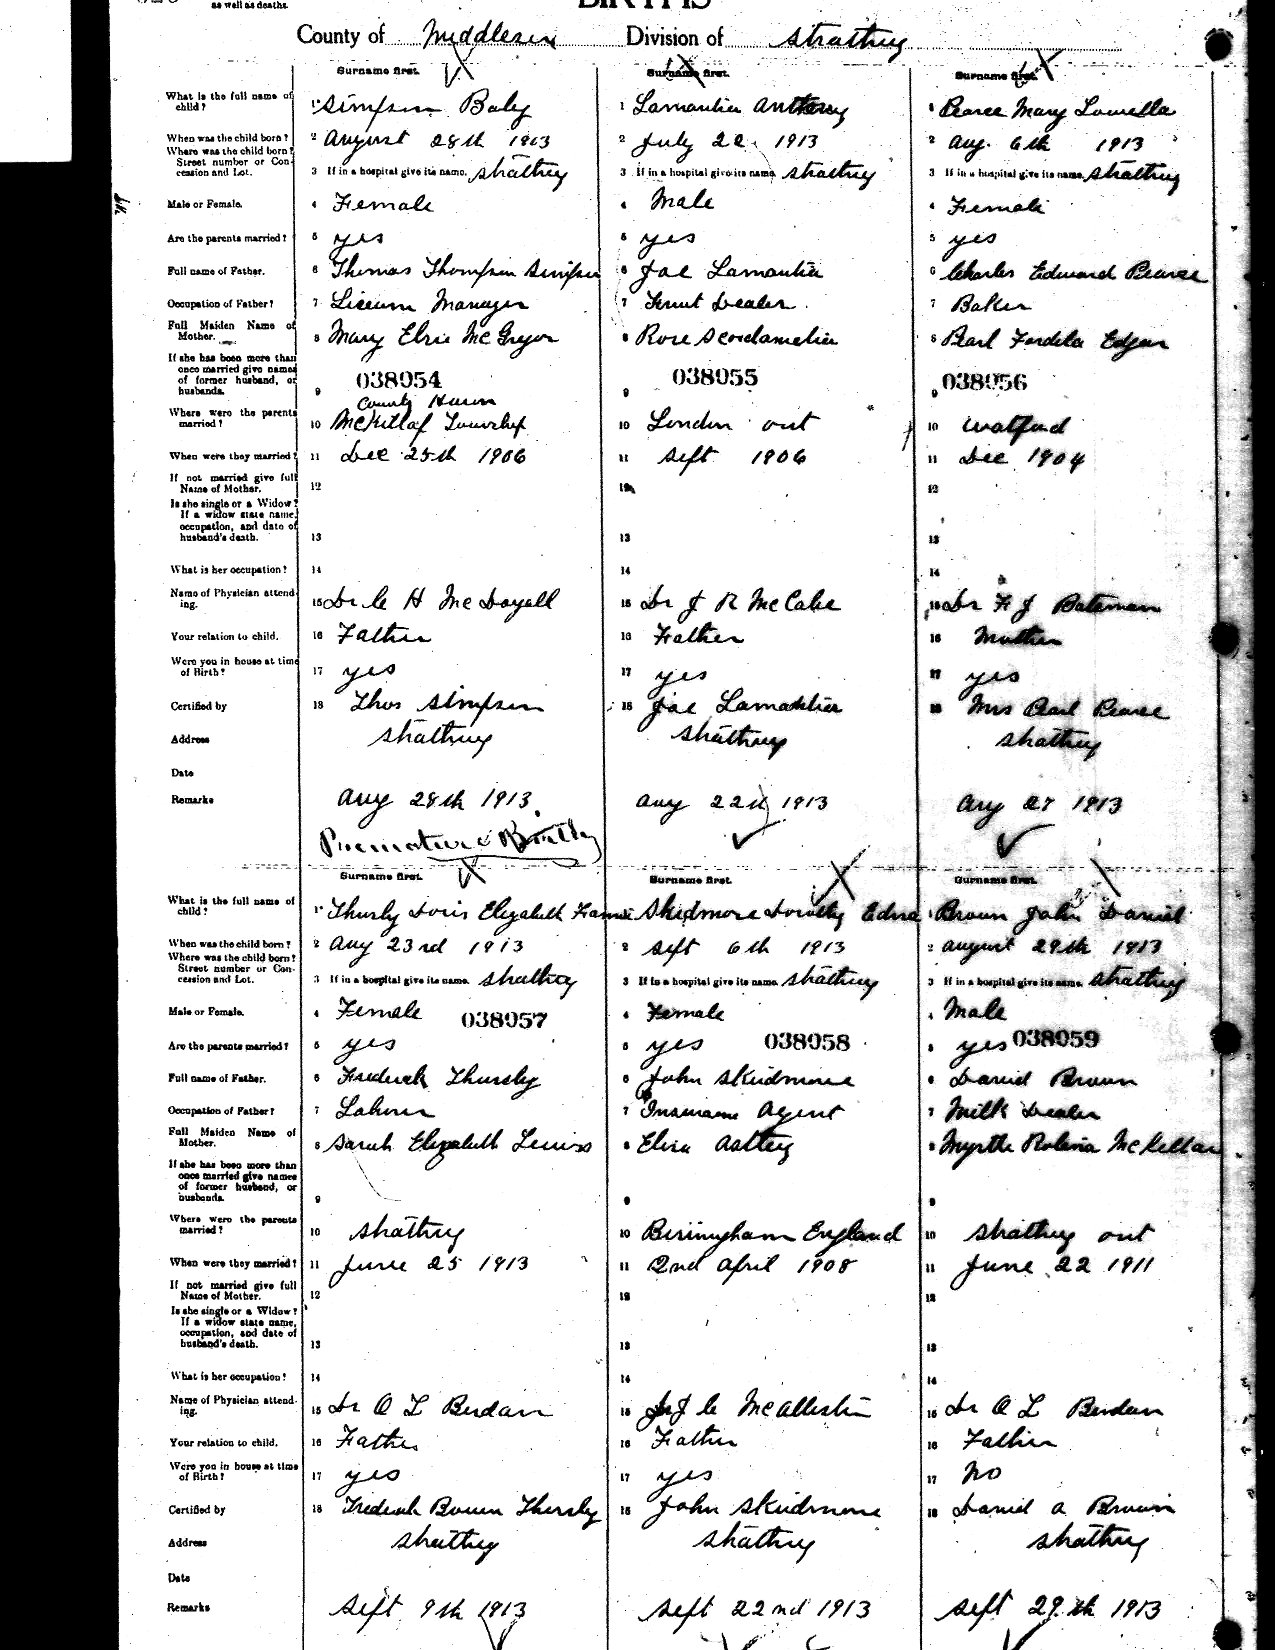 as well as deaths.
BIRTHS
County of Middlesex Division of Strathroy
Surname first. Surname first. Surname first.
What is the full name of child? 1 Simpson Baby 1 Lamantia Anthony 1 Pearce Mary Louella
When was the child born? 2 August 28th 1913 2 July 22 1913 2 Aug. 6th 1913
Where was the child born? Street number or Concession and Lot. 3 If in a hospital give its name. Strathroy 3 If in a hospital give its name. Strathroy 3 If in a hospital give its name. Strathroy
Male or Female. 4 Female 4 Male 4 Female
Are the parents married? 5 yes 5 yes 5 yes
Full name of Father. 6 Thomas Thompson Simpson 6 Joe Lamantia 6 Charles Edward Pearce
Occupation of Father? 7 Liceum Manager 7 Fruit Dealer 7 Baker
Full Maiden Name of Mother. 8 Mary Elsie McGregor 8 Rose 8 Pearl Fordela Edgar
If she has been more than once married give names of former husband, or husbands. 9 038054 9 038055 9 038056
County Huron
Where were the parents married? 10 McKillop Township 10 London Ont 10 Watford
When were they married? 11 Dec 25th 1906 11 Sept 1906 11 Dec 1904
If not married give full Name of Mother. 12 12 12
Is she single or a Widow? If a widow state name, occupation, and date of husband's death. 13 13 13
What is her occupation? 14 14 14
Name of Physician attending. 15 Dr C H McDoyall 15 Dr J R McCabe 15 Dr F J Bateman
Your relation to child. 16 Father 16 Father 16 Mother
Were you in house at time of Birth? 17 yes 17 yes 17 yes
Certified by 18 Thos Simpson 18 Joe Lamantia 18 Mrs Pearl Pearce
Address Strathroy Strathroy Strathroy
Date
Remarks Aug 28th 1913 Aug 22 1913 Aug 27 1913
Premature Birth
Surname first. Surname first. Surname first.
What is the full name of child? 1 Thursby Doris Elizabeth 1 Skidmore Dorothy Edna 1 Brown John Daniel
When was the child born? 2 Aug 23rd 1913 2 Sept 6th 1913 2 August 29th 1913
Where was the child born? Street number or Concession and Lot. 3 If in a hospital give its name. Strathroy 3 If in a hospital give its name. Strathroy 3 If in a hospital give its name. Strathroy
Male or Female. 4 Female 038057 4 Female 4 Male
Are the parents married? 5 yes 5 yes 038058 5 yes 038059
Full name of Father. 6 Frederick Thursby 6 John Skidmore 6 Daniel Brown
Occupation of Father? 7 Laborer 7 Insurance Agent 7 Milk Dealer
Full Maiden Name of Mother. 8 Sarah Elizabeth Lewis 8 Eliza Astley 8 Myrtle Rolena McKellar
If she has been more than once married give names of former husband, or husbands. 9 9 9
Where were the parents married? 10 Strathroy 10 Birmingham England 10 Strathroy Ont
When were they married? 11 June 25 1913 11 2nd April 1908 11 June 22 1911
If not married give full Name of Mother. 12 12 12
Is she single or a Widow? If a widow state name, occupation, and date of husband's death. 13 13 13
What is her occupation? 14 14 14
Name of Physician attending. 15 Dr A L Berdan 15 Dr J C McAllister 15 Dr A L Berdan
Your relation to child. 16 Father 16 Father 16 Father
Were you in house at time of Birth? 17 yes 17 yes 17 No
Certified by 18 Frederick Bowen Thursby 18 John Skidmore 18 Daniel A Brown
Address Strathroy Strathroy Strathroy
Date
Remarks Sept 9th 1913 Sept 22nd 1913 Sept 29th 1913